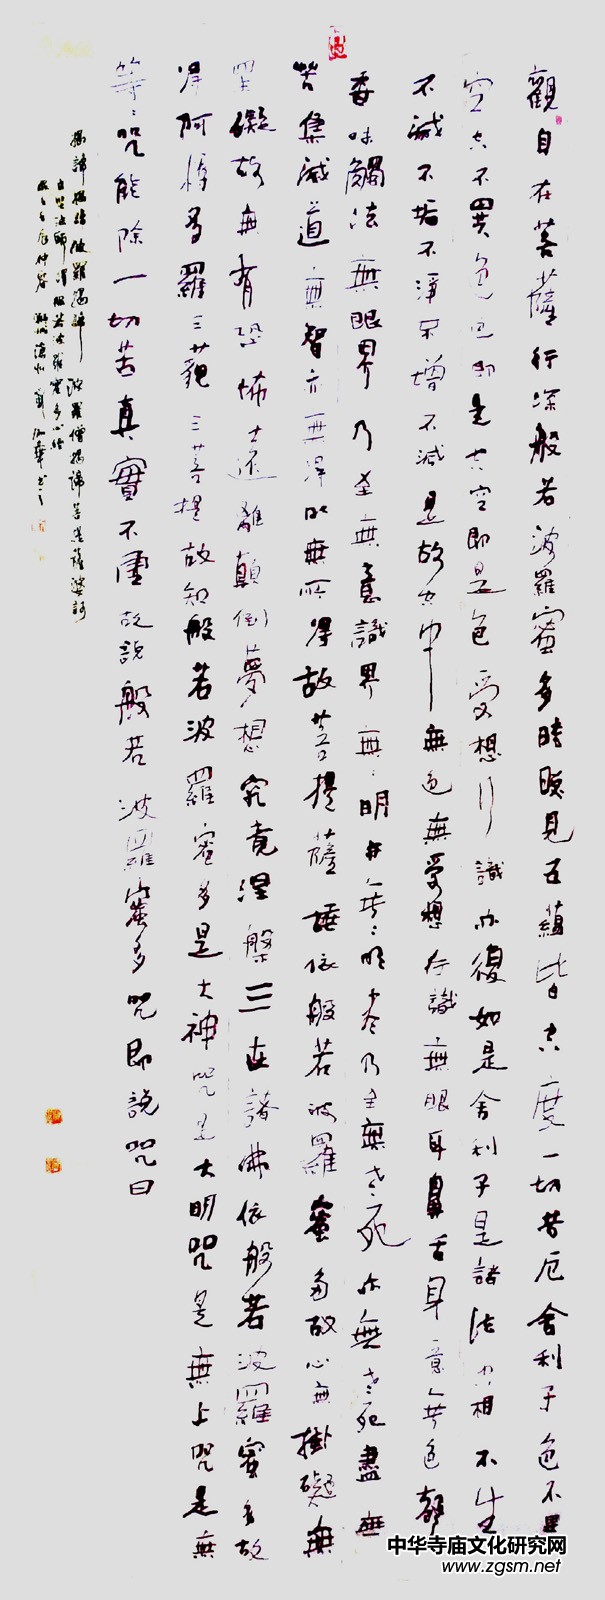 觀自在菩薩行深般若波羅蜜多時照見五蘊皆空度一切苦厄舍利子色不異
空空不異色色即是空空即是色受想行識亦復如是舍利子是諸法空相不生
不滅不垢不淨不增不減是故空中無色無受想行識無眼耳鼻舌身意無色聲
香味觸法無眼界乃至無意識界無々明亦無々明盡乃至無老死亦無老死盡無
苦集滅道無智亦無得以無所得故菩提薩埵依般若波羅蜜多故心無掛礙無
罣礙故無有恐怖遠離顛倒夢想究竟涅槃三世諸佛依般若波羅蜜多故
得阿耨多羅三藐三菩提故知般若波羅蜜多是大神咒是大明咒是無上咒是無
等々咒能除一切苦真實不虛故說般若波羅蜜多咒即說咒曰
揭諦揭諦波羅揭諦 波羅僧揭諦菩提薩婆訶
玄奘法師譯般若波羅蜜多心經
中华寺庙文化研究网
www.zgsm.net